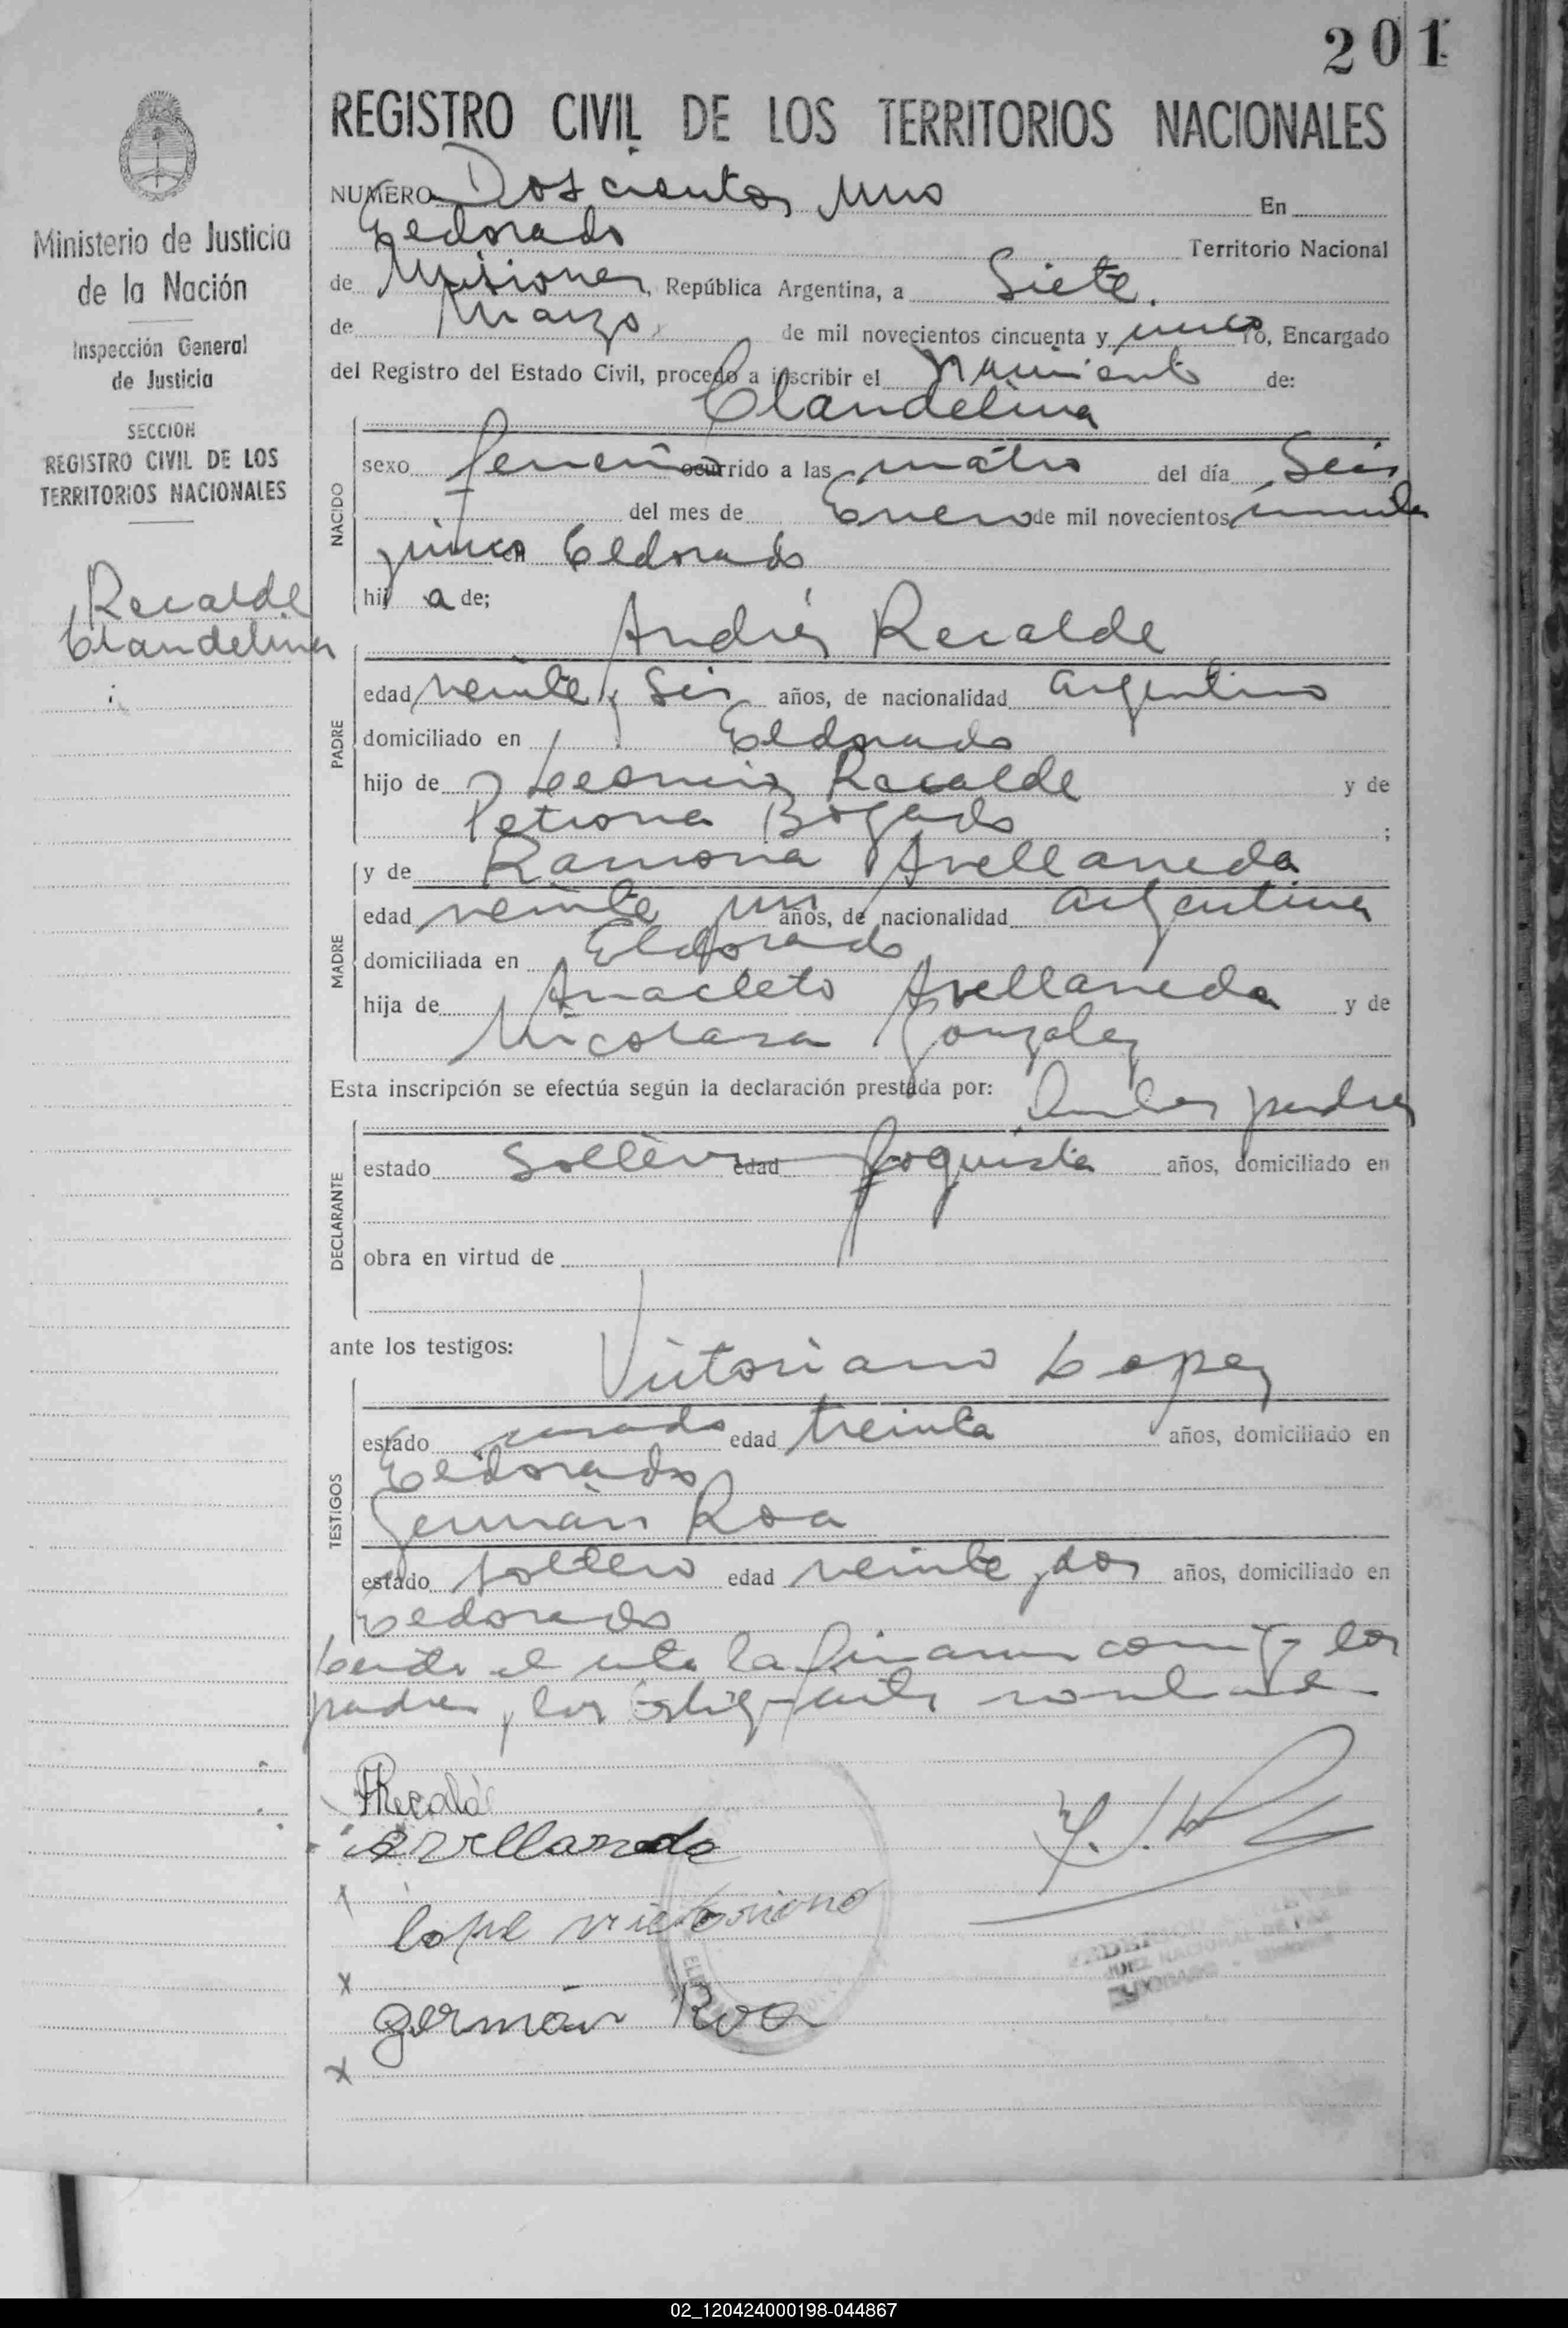 201
REGISTRO CIVIL DE LOS TERRITORIOS NACIONALES
NUMERO Doscientos uno En
Eldorado Territorio Nacional
de Misiones, República Argentina, a Siete.
de Marzo de mil novecientos cincuenta y cinco Yo, Encargado
del Registro del Estado Civil, procedo a inscribir el de:
Clandelina
Ministerio de Justicia
de la Nación
Inspección General
de Justicia
SECCION
REGISTRO CIVIL DE LOS
TERRITORIOS NACIONALES
Recalde
Clandelina
NACIDO
sexo ocurrido a las cuatro del día Seis
del mes de Enero de mil novecientos
cinco en Eldorado
hij a de;
Andrés Recalde
PADRE
edad veinte y Seis años, de nacionalidad argentino
domiciliado en Eldorado
hijo de Recalde y de
Petrona Bogado ;
y de Ramona Avellaneda
MADRE
edad veinte un años, de nacionalidad argentina
domiciliada en Eldorado
hija de Anacleto Avellaneda y de
Nicolasa Gonzalez
Esta inscripción se efectúa según la declaración prestada por: padres
DECLARANTE
estado edad foguista años, domiciliado en
obra en virtud de
ante los testigos:
Victoriano Lopez
TESTIGOS
estado casado edad treinta años, domiciliado en
Eldorado
Germán Roa
estado soltero edad veinte dos años, domiciliado en
Eldorado
el acta la firman los
padres y los
Avellaneda
lope victoriano
x
germán Roa
x
02_120424000198-044867